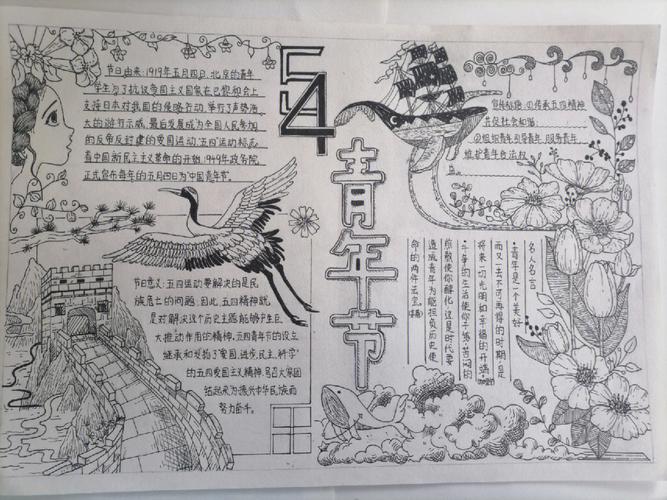 54
青年节
节日由来:1919年五月四日,北京的青年
学生为了抗议帝国主义国家在巴黎和会上
支持日本对我国的侵略行动,举行了声势浩
大的游行示威,最后发展成为全国人民参加
的反帝反封建的爱国运动,五四运动标志
着中国新民主主义革命的开始,1949年政务院
正式宣布每年的五月四日为中国青年节。
节日意义:五四运动要解决的是民
族危亡的问题,因此,五四精神就
是对解决这个历史主题能够产生巨
大推动作用的精神,五四青年节的设立
继承和发扬了“爱国、进步、民主、科学”
的五四爱国主义精神,号召大家团
结起来为振兴中华民族而
努力奋斗。
①传承五四精神
共促社会和谐
②组织青年引导青年服务青年
维护青年合法权
益
名人名言
·青年是一个美好
而又一去不可再得的时期,是
将来一切光明和幸福的开端
·斗争的生活使你干练,苦闷的
煎熬使你醇化,这是时代要
造成青年为能担负历史使
命的两件法宝